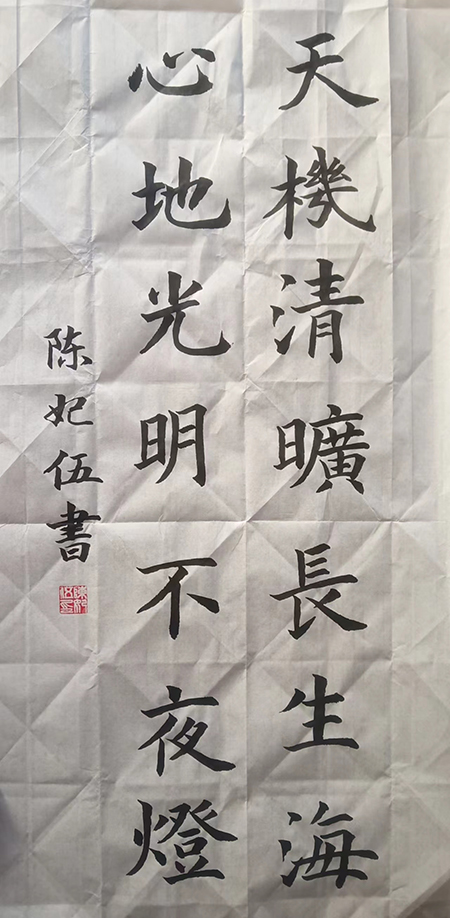 天機清曠長生海
心地光明不夜燈
陈妃伍書